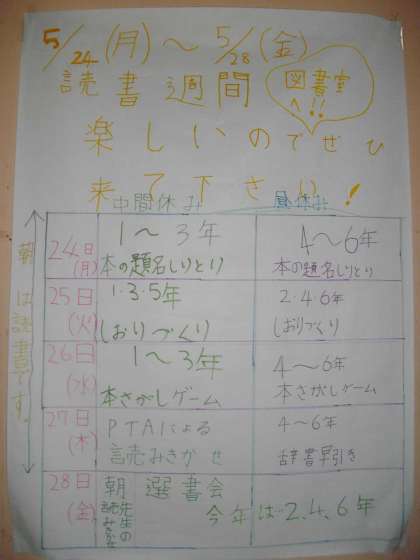 5/24(月)〜5/28(金)
読書週間
図書室
へ!!
楽しいのでぜひ
来て下さい!
中間休み
昼休み
朝は読書です。
24日(月)
1〜3年
本の題名しりとり
4〜6年
本の題名しりとり
25日(火)
1・3・5年
しおりづくり
2・4・6年
しおりづくり
26日(水)
1〜3年
本さがしゲーム
4〜6年
本さがしゲーム
27日(木)
PTAによる
読みきかせ
4〜6年
辞書早引き
28日(金)
朝
先生の
選書会
今年は2、4、6年